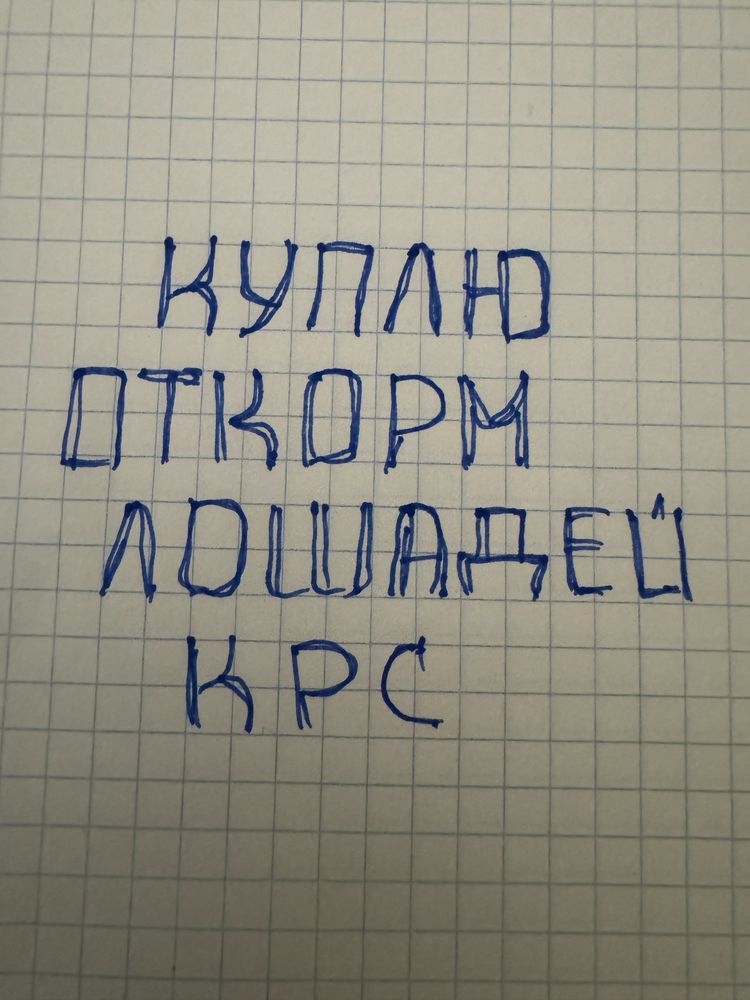 КУПЛЮ
ОТКОРМ
ЛОШАДЕЙ
КРС